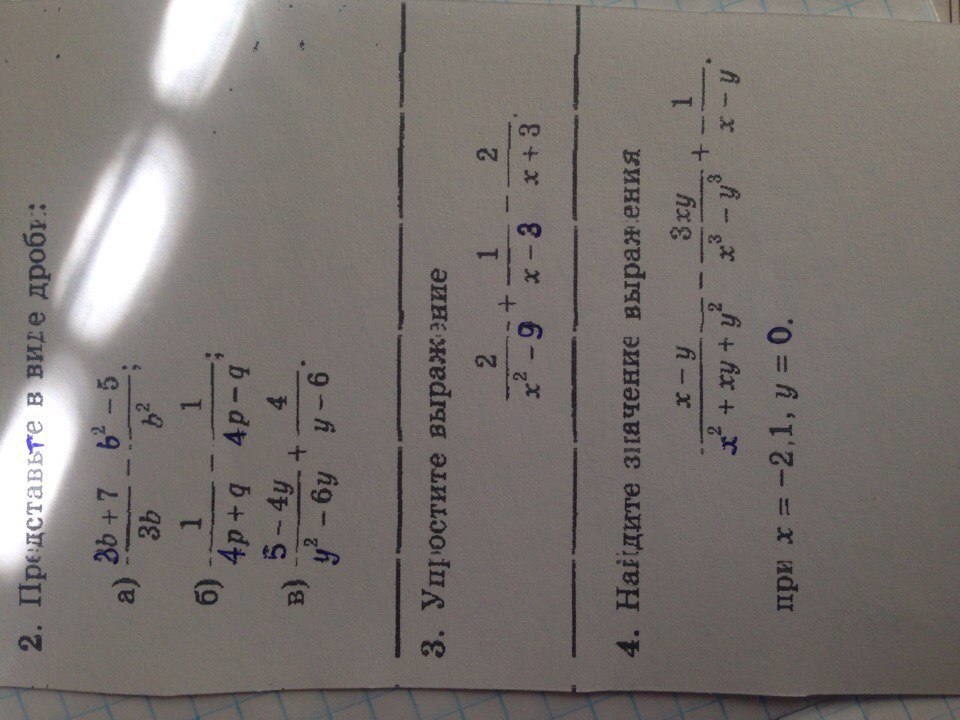 2. Представьте в виде дроби:
а) (3b + 7)/(3b) − (b² − 5)/(b²);
б) 1/(4p + q) − 1/(4p − q);
в) (5 − 4y)/(y² − 6y) + 4/(y − 6).
3. Упростите выражение
2/(x² − 9) + 1/(x − 3) − 2/(x + 3).
4. Найдите значение выражения
(x − y)/(x² + xy + y²) − 3xy/(x³ − y³) + 1/(x − y).
при x = −2,1, y = 0.